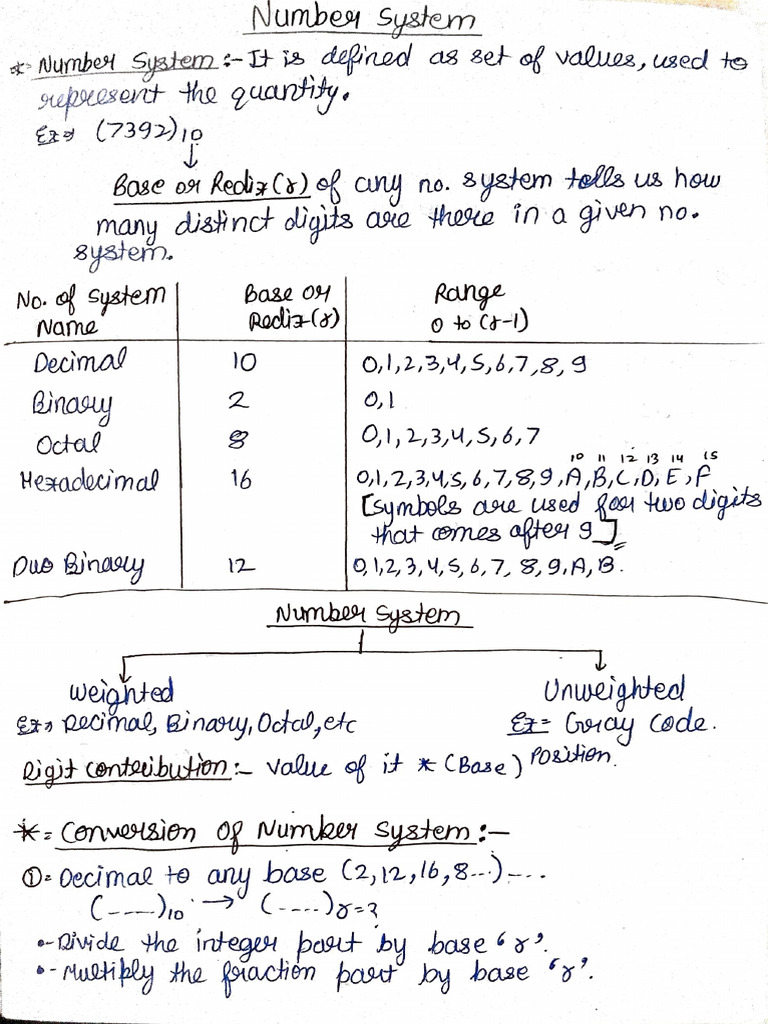 Number System
* Number System :- It is defined as set of values, used to
represent the quantity.
Ex→ (7392)10
↓
Base or Redix(r) of any no. system tells us how
many distinct digits are there in a given no.
system.
No. of System Name | Base or Redix(r) | Range 0 to (r-1)
Decimal | 10 | 0,1,2,3,4,5,6,7,8,9
Binary | 2 | 0,1
Octal | 8 | 0,1,2,3,4,5,6,7
10 11 12 13 14 15
Hexadecimal | 16 | 0,1,2,3,4,5,6,7,8,9,A,B,C,D,E,F
[symbols are used for two digits
that comes after 9]
Duo Binary | 12 | 0,1,2,3,4,5,6,7,8,9,A,B.
Number System
Weighted Unweighted
Ex→ Decimal, Binary, Octal, etc Ex= Gray Code.
Digit contribution:- value of it * (Base) Position.
*= Conversion Of Number System:-
①= Decimal to any base (2,12,16,8...)-...
(----)10 → (....)r=?
•-Divide the integer part by base 'r'.
•-Multiply the fraction part by base 'r'.